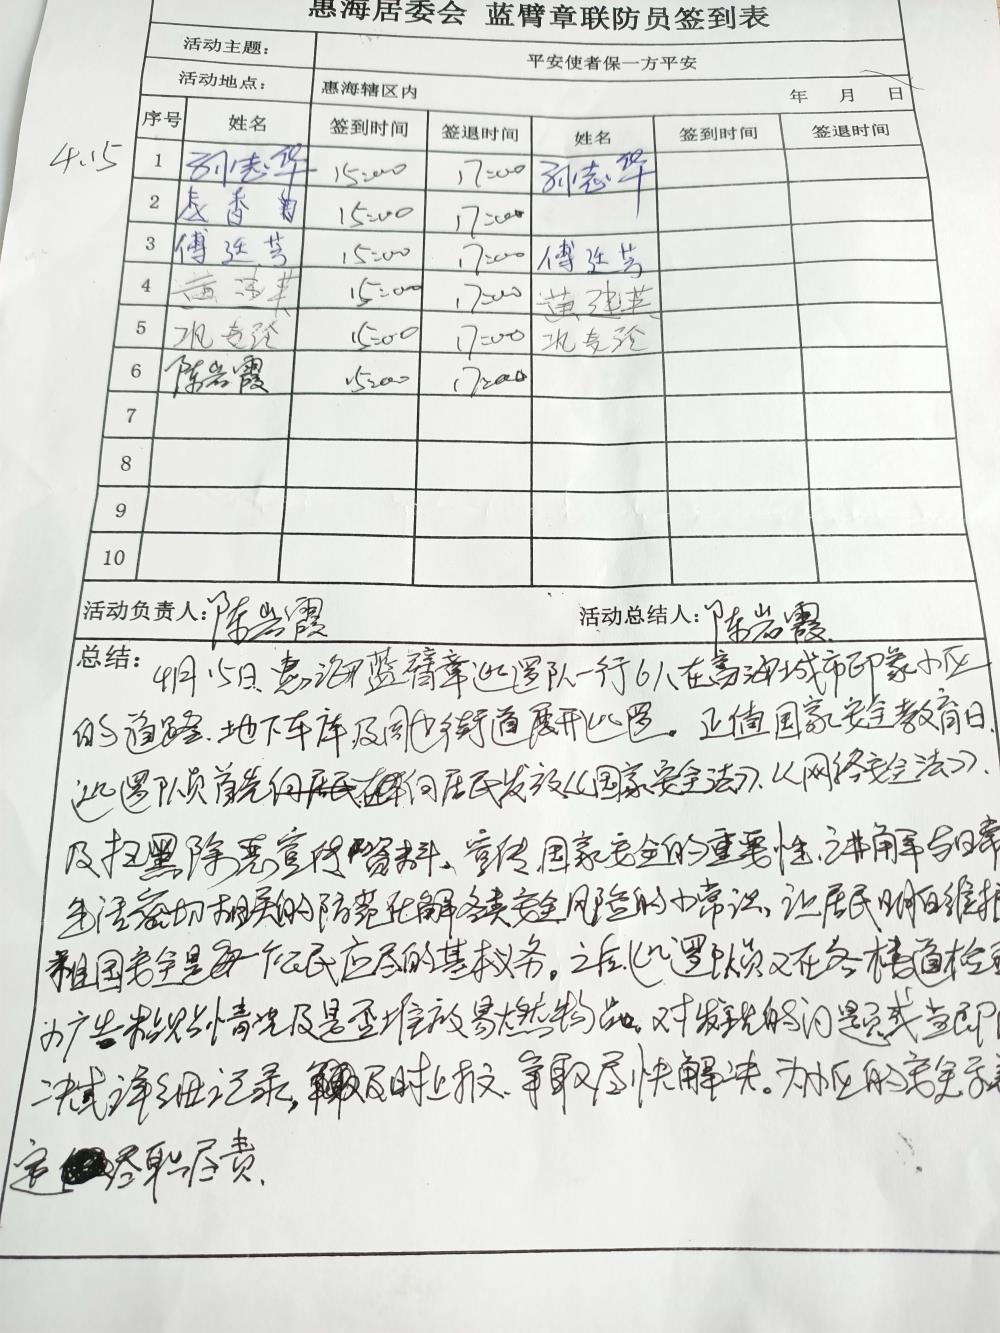 惠海居委会 蓝臂章联防员签到表
活动主题： 平安使者保一方平安
活动地点： 惠海辖区内 年 月 日
序号 姓名 签到时间 签退时间 姓名 签到时间 签退时间
4.15
1 孙志华 15:00 17:00 孙志华
2 香菊 15:00 17:00
3 傅廷芳 15:00 17:00 傅廷芳
4 黄建英 15:00 17:00 黄建英
5 巩 15:00 17:00 巩
6 陈岩霞 15:00 17:00
7
8
9
10
活动负责人：陈岩霞 活动总结人：陈岩霞
总结： 4月15日,惠海蓝臂章巡逻队一行6人在海上城市印象小区
的道路、地下车库及周边街道展开巡逻。正值国家安全教育日,
巡逻队员首先向居民发放《国家安全法》、《网络安全法》、
及扫黑除恶宣传资料、宣传国家安全的重要性,讲解与日常
生活密切相关的防范化解各类安全风险的小常识,让居民明白维护
祖国安全是每一个公民应尽的基本义务。之后,巡逻队员又在各楼道检查
小广告粘贴情况及是否堆放易燃物品,对发现的问题或当即解
决或详细记录,及时上报、争取尽快解决。为小区的安全
定尽职尽责.